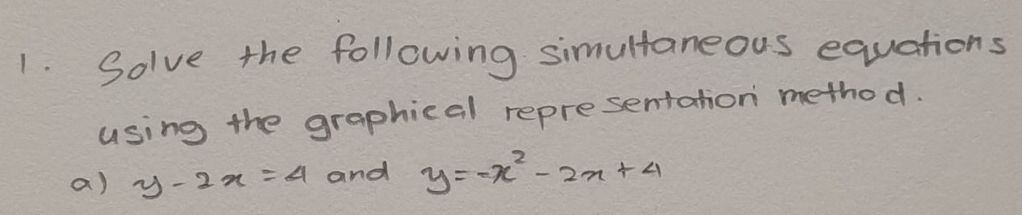 1. Solve the following simultaneous equations
using the graphical representation method.
a) y - 2x = 4 and y = -x² - 2x + 4